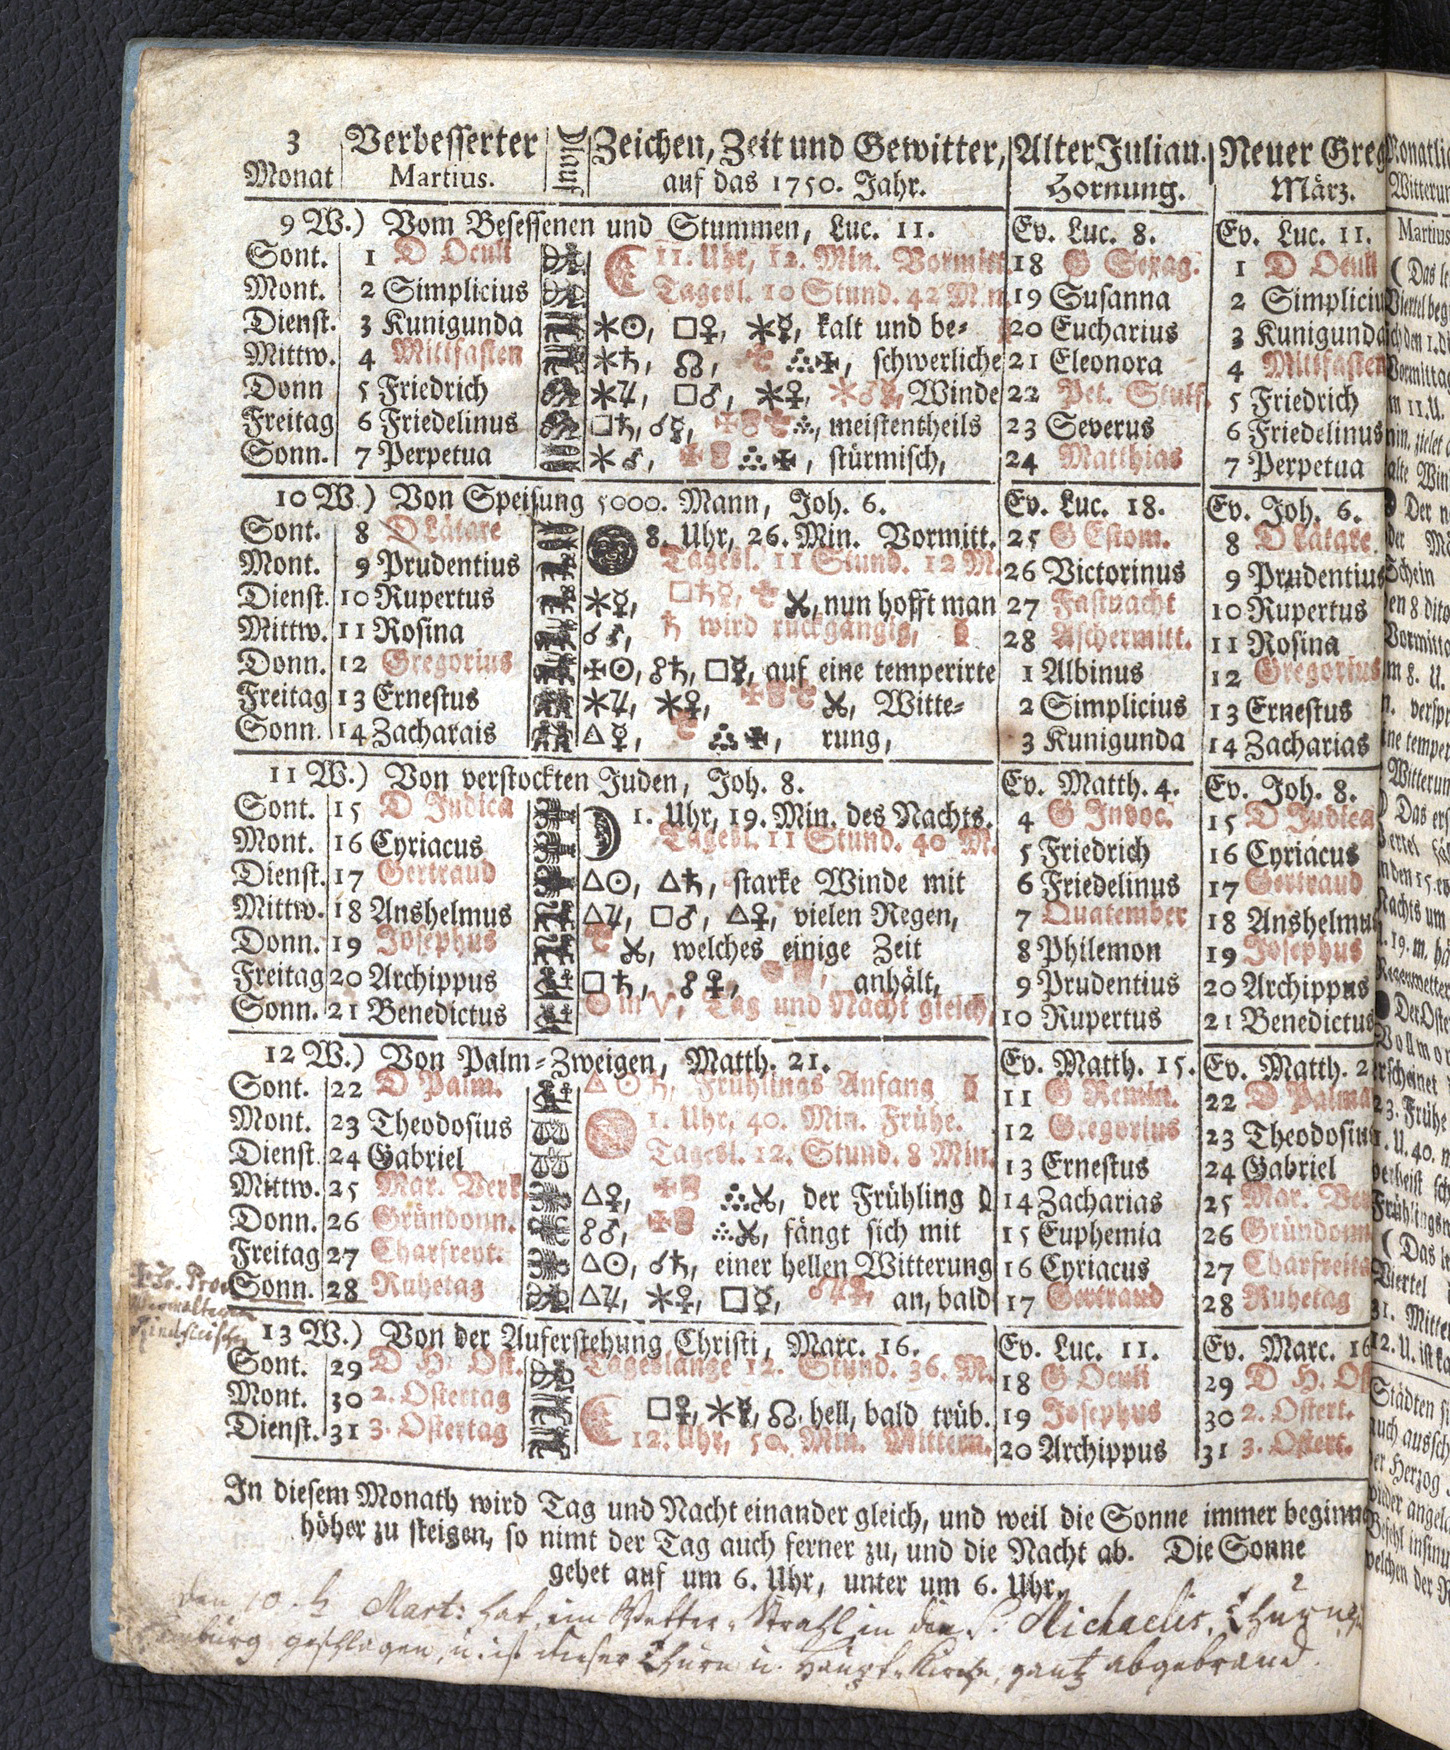 3 Verbesserter Zeichen, Zeit und Gewitter, Alter Julian. Neuer Greg
Monat Martius. ☽lauf auf das 1750. Jahr. Hornung. März.
9 W.) Vom Besessenen und Stummen, Luc. 11. Ev. Luc. 8. Ev. Luc. 11.
Sont. 1 D Oculi 11. Uhr, 12. Min. Vormitt. 18 G Sexag. 1 D Oculi
Mont. 2 Simplicius Tagesl. 10 Stund. 42 M.n. 19 Susanna 2 Simpliciu
Dienst. 3 Kunigunda ⚹☉, □♀, ⚹☿, kalt und be= 20 Eucharius 3 Kunigunda
Mittw. 4 Mittfasten ⚹♄, ☊, schwerliche 21 Eleonora 4 Mittfasten
Donn 5 Friedrich ⚹♃, □♂, ⚹♀, Winde 22 Pet. Stulf. 5 Friedrich
Freitag 6 Friedelinus □♄, ☌☿, meistentheils 23 Severus 6 Friedelinus
Sonn. 7 Perpetua ⚹♂, stürmisch, 24 Matthias 7 Perpetua
10 W.) Von Speisung 5000. Mann, Joh. 6. Ev. Luc. 18. Ev. Joh. 6.
Sont. 8 D Lätare 8. Uhr, 26. Min. Vormitt. 25 G Estom. 8 D Lätare
Mont. 9 Prudentius Tagesl. 11 Stund. 12 M. 26 Victorinus 9 Prudentius
Dienst. 10 Rupertus ⚹☿, □♄☿, nun hofft man 27 Fastnacht 10 Rupertus
Mittw. 11 Rosina ☌♂, ♄ wird rückgängig, 28 Aschermitt. 11 Rosina
Donn. 12 Gregorius ☍♄, □☿, auf eine temperirte 1 Albinus 12 Gregorius
Freitag 13 Ernestus ⚹♃, ⚹♀, Witte= 2 Simplicius 13 Ernestus
Sonn. 14 Zacharais △☿, rung, 3 Kunigunda 14 Zacharias
11 W.) Von verstockten Juden, Joh. 8. Ev. Matth. 4. Ev. Joh. 8.
Sont. 15 D Judica 1. Uhr, 19. Min. des Nachts. 4 G Invoc. 15 D Judica
Mont. 16 Cyriacus Tagesl. 11 Stund. 40 M. 5 Friedrich 16 Cyriacus
Dienst. 17 Gertraud △☉, △♄, starke Winde mit 6 Friedelinus 17 Gertraud
Mittw. 18 Anshelmus △♃, □♂, △♀, vielen Regen, 7 Quatember 18 Anshelmus
Donn. 19 Josephus welches einige Zeit 8 Philemon 19 Josephus
Freitag 20 Archippus □♄, ☍♀, anhält, 9 Prudentius 20 Archippus
Sonn. 21 Benedictus ☉ in ♈, Tag und Nacht gleich, 10 Rupertus 21 Benedictus
12 W.) Von Palm=Zweigen, Matth. 21. Ev. Matth. 15. Ev. Matth. 2
Sont. 22 D Palm. △☉♄, Frühlings Anfang 11 G Remin. 22 D Palma
Mont. 23 Theodosius 1. Uhr, 40. Min. Frühe. 12 Gregorius 23 Theodosius
Dienst. 24 Gabriel Tagesl. 12. Stund. 8 Min. 13 Ernestus 24 Gabriel
Mittw. 25 Mar. Verk. △♀, der Frühling 14 Zacharias 25 Mar. Ver
Donn. 26 Gründonn. ☍♂, fängt sich mit 15 Euphemia 26 Gründonn
Freitag 27 Charfreyt. △☉, ☌♄, einer hellen Witterung 16 Cyriacus 27 Charfreita
Sonn. 28 Ruhetag △♃, ⚹♀, □☿, an, bald 17 Gertraud 28 Ruhetag
13 W.) Von der Auferstehung Christi, Marc. 16. Ev. Luc. 11. Ev. Marc. 16
Sont. 29 D H. Ost. Tageslänge 12. Stund. 36. M. 18 G Oculi 29 D H. Os
Mont. 30 2. Ostertag □♀, ⚹☿, ☊. hell, bald trüb. 19 Josephus 30 2. Ostert.
Dienst. 31 3. Ostertag 12. Uhr, 50. Min. Mittern. 20 Archippus 31 3. Ostert.
In diesem Monath wird Tag und Nacht einander gleich, und weil die Sonne immer beginne
höher zu steigen, so nimt der Tag auch ferner zu, und die Nacht ab. Die Sonne
gehet auf um 6. Uhr, unter um 6. Uhr.
den 10. Mart: hat, im Wetter=Strahl in die S. Michaelis. Thurn
burg geschlagen, u. ist dieser Thurn u. Haupt=Kirche, gantz abgebrand.